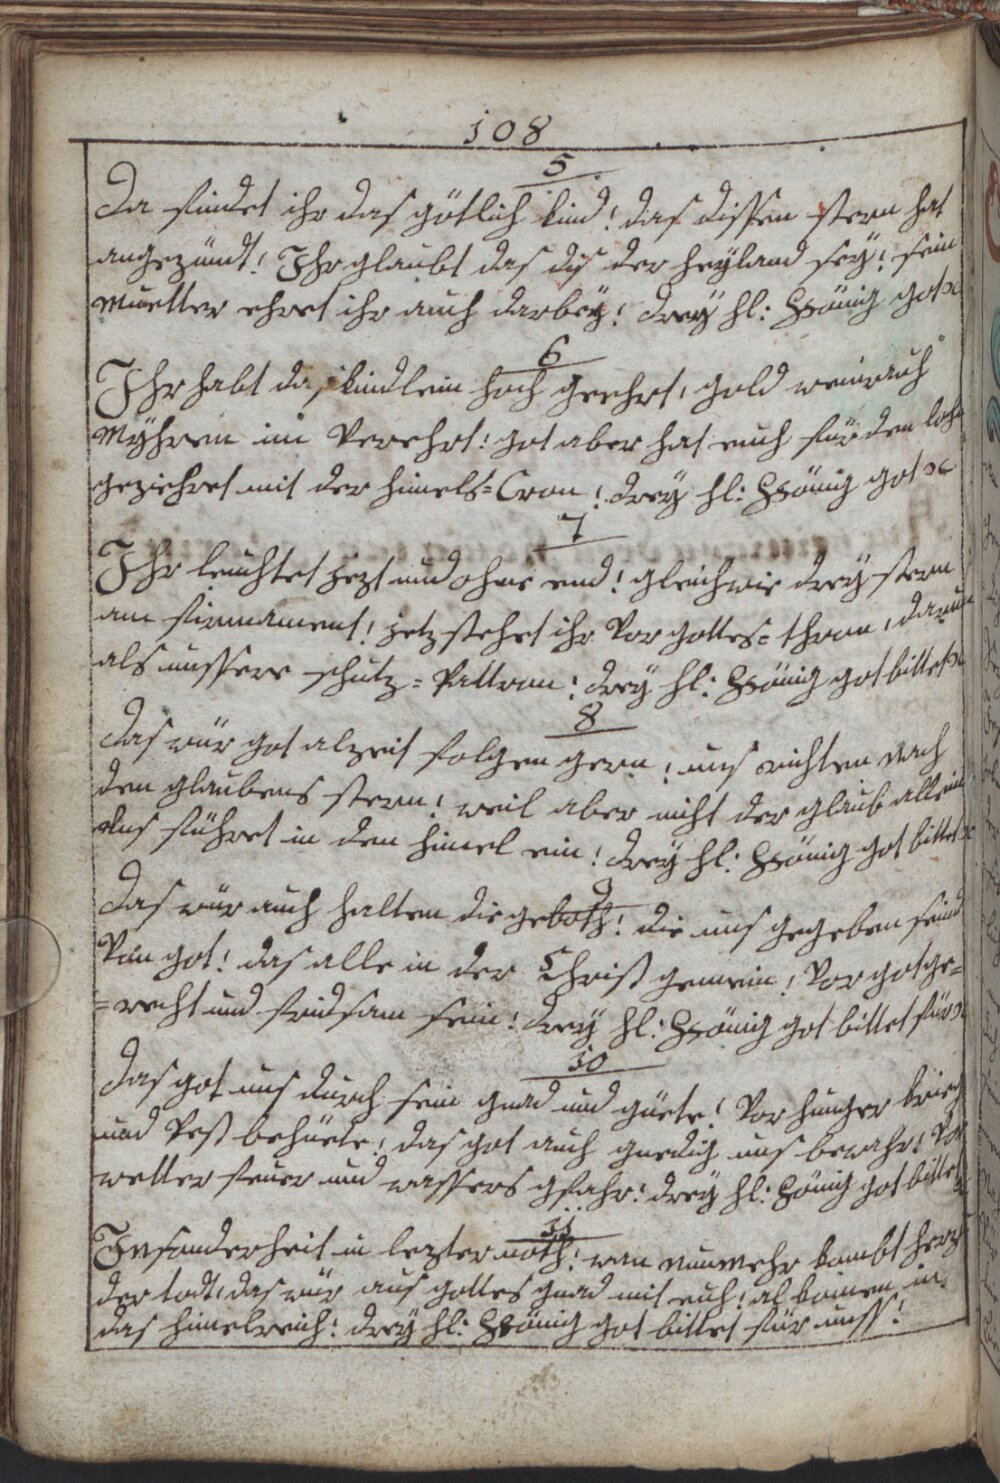 108
5
Da findet ihr das götlich kind! das dissen stern hat
angezündt! Ihr glaubt das dis der heyland sey! sein
Muetter ehret ihr auch darbey! drey hl: König got x
6
Ihr habt das kindlein hoch geehrt, gold weirauch
Myhren im verehrt: got aber hat euch für den loh
geziehret mit der himels=Cron! drey hl: König got x
7
Ihr leuchtet jezt und ohne end! gleich wie drey stern
am firmament! jetz stehet ihr vor gottes=thron, darum
als unssere schutz=Pattron! drey hl: König got bittet x
8
Das wür got alzeit folgen gern! uns richten nach
den glaubens stern! weil aber nicht der glaub allein
uns führet in den himel ein! drey hl: König got bittet x
9
Das wür auch halten die geboth! die uns gegeben seind
Von got! das alle in der Christ gemein! vor got ge=
=recht und fridsam sein! drey hl: König got bittet für x
10
Das got uns durch sein gnad und güete! Vor hunger krieg
und Pest behüete! das got auch gnedig uns bewahr! Vor
wetter feuer und wassers gfahr! drey hl: König got bittet
11
Insonderheit in lezter noth! wan nunmehr kombt herzu
der todt, das wür aus gottes gnad mit euch! al komen in
das himelreich! drey hl: König got bittet für unss!